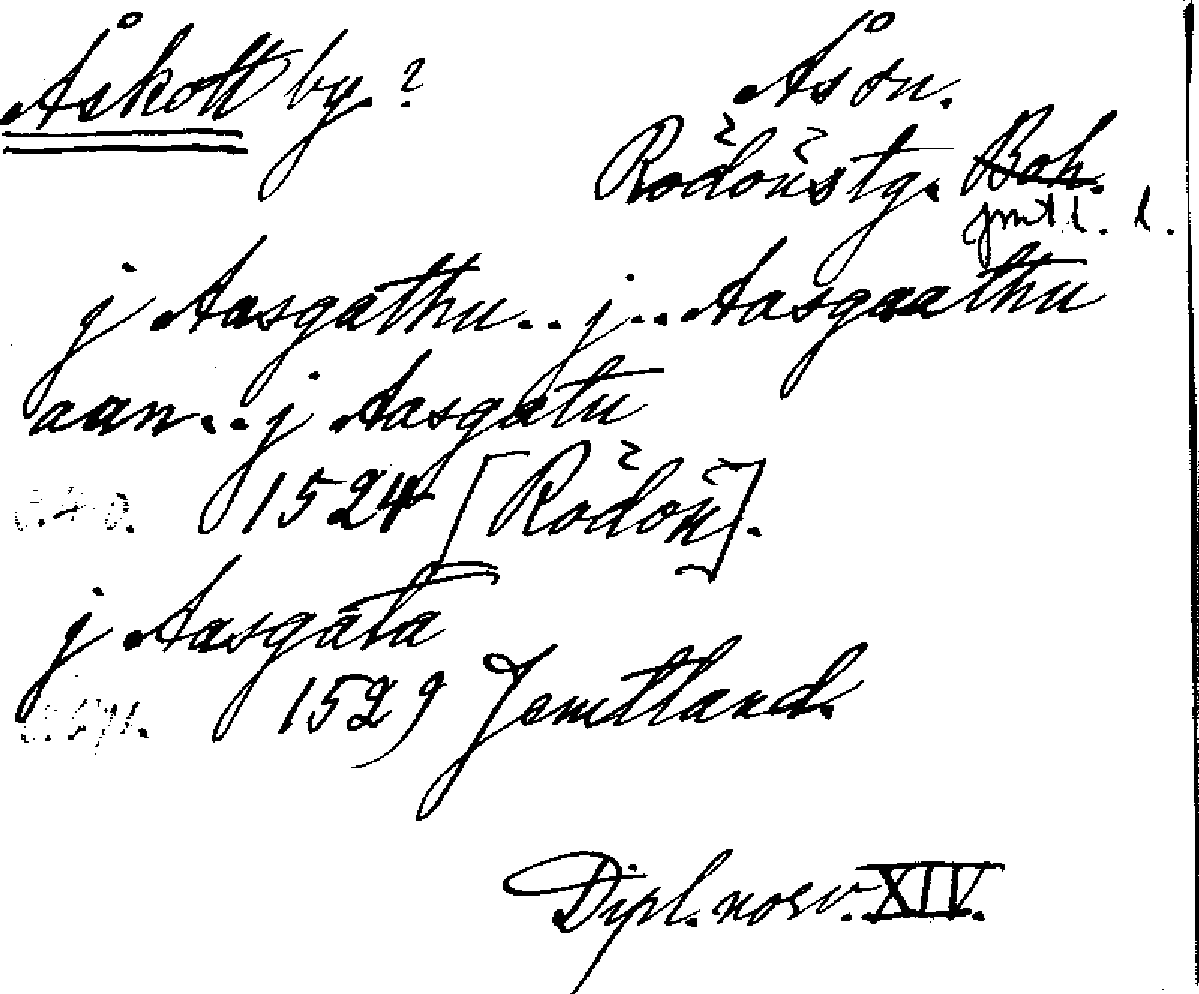 Åskott by.?
Ås sn.
Rödöns tg. Boh.
jmtl. l.
j Aasgathu.. j.. Aasgaathu
aan... j Aasgatu
1524 [Rödön].
j Aasgata
1529 Jemtland.
Dipl. norv. XIV.